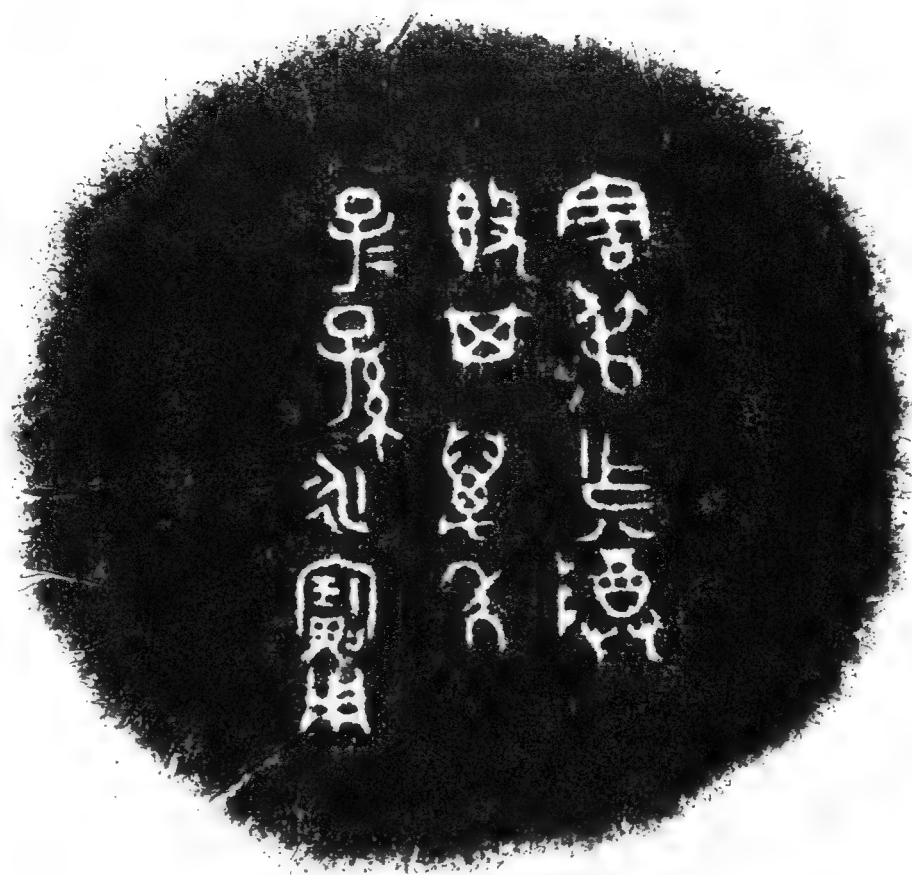 害弔乍𬯚
𣪘其萬年
子＝孫永寶用